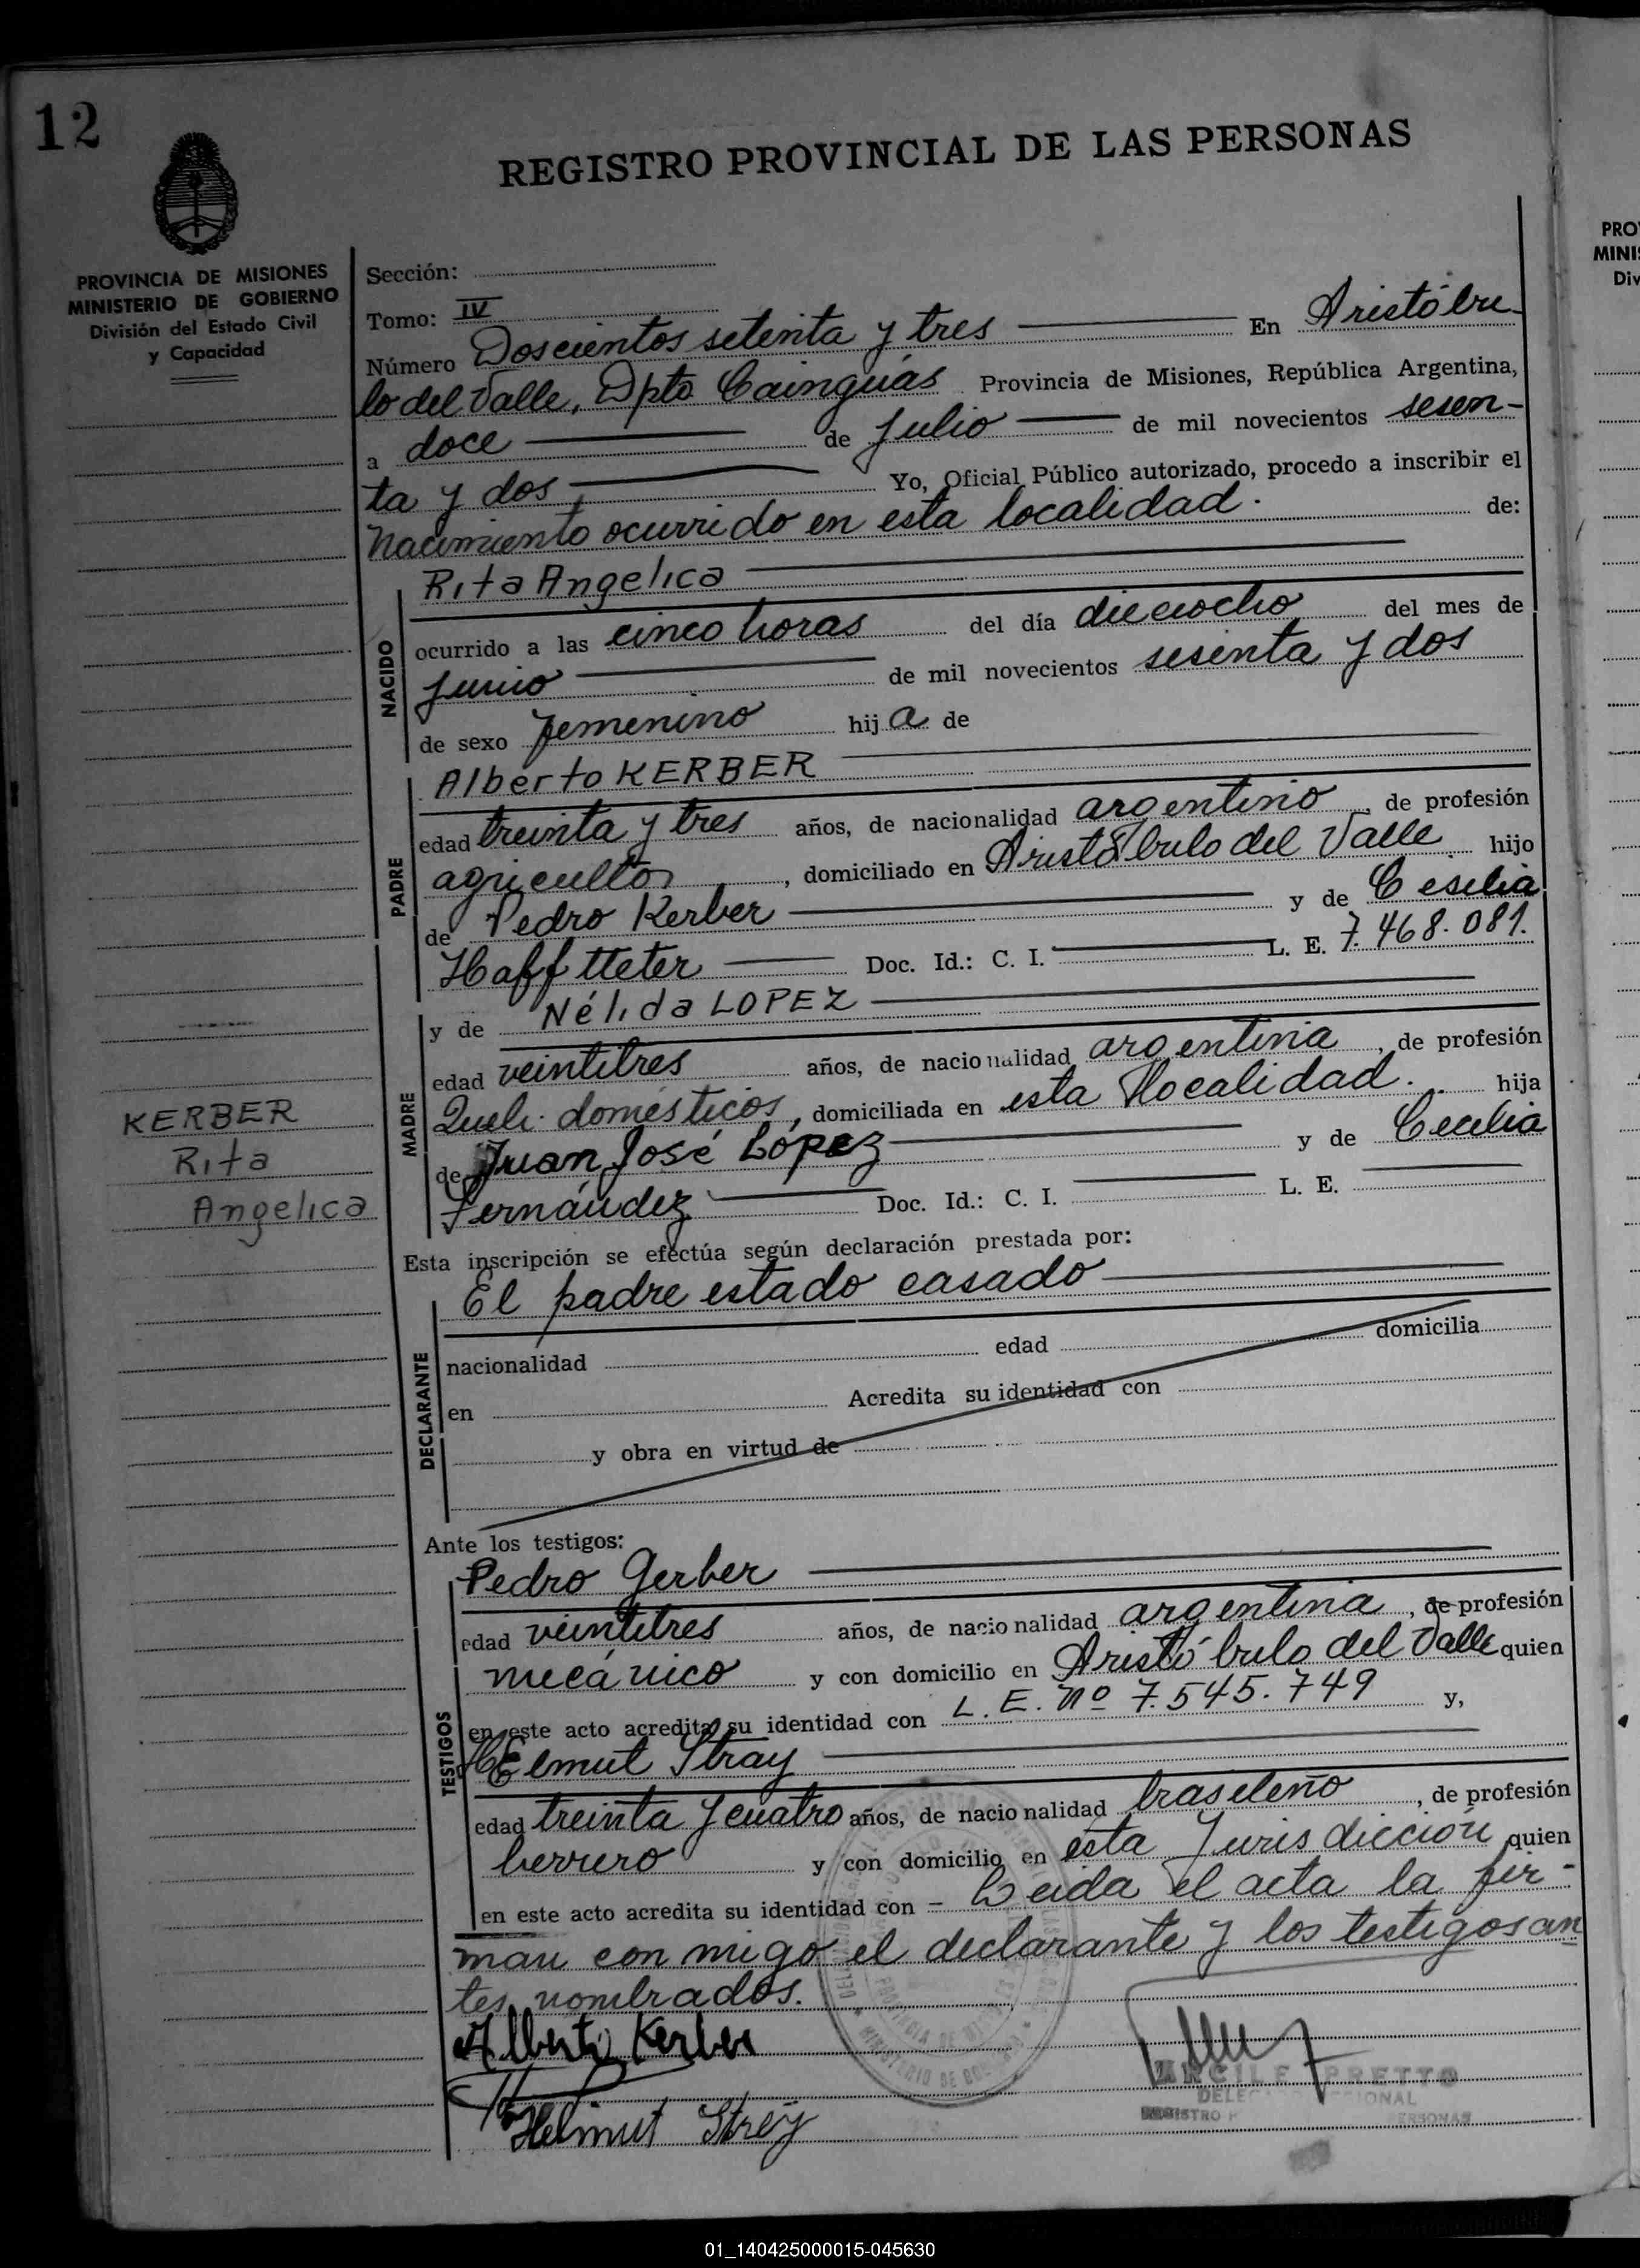 12
REGISTRO PROVINCIAL DE LAS PERSONAS
PROVINCIA DE MISIONES
MINISTERIO DE GOBIERNO
División del Estado Civil
y Capacidad
Sección:
Tomo: IV
Número Doscientos setenta y tres En Aristóbu
lo del Valle, Dpto Cainguás Provincia de Misiones, República Argentina,
a doce de julio de mil novecientos sesen-
ta y dos, Yo, Oficial Público autorizado, procedo a inscribir el
nacimiento ocurrido en esta localidad. de:
NACIDO
Rita Angelica
ocurrido a las cinco horas del día dieciocho del mes de
junio de mil novecientos sesenta y dos
de sexo femenino hij a de
PADRE
Alberto KERBER
edad treinta y tres años, de nacionalidad argentino, de profesión
agricultor, domiciliado en Aristóbulo del Valle hijo
de Pedro Kerber y de Cesilia
Hafftteter Doc. Id.: C. I. L. E. 7.468.081.
MADRE
y de Nélida LOPEZ
edad veintitres años, de nacionalidad argentina, de profesión
Queh. domésticos, domiciliada en esta localidad. hija
de Juan José López y de Cecilia
Fernández Doc. Id.: C. I. L. E.
KERBER
Rita
Angelica
Esta inscripción se efectúa según declaración prestada por:
DECLARANTE
El padre estado casado
nacionalidad edad domicilia
en Acredita su identidad con
y obra en virtud de
Ante los testigos:
TESTIGOS
Pedro Gerber
edad veintitres años, de nacionalidad argentina, de profesión
mecánico y con domicilio en Aristóbulo del Valle quien
en este acto acredita su identidad con L. E. nº 7.545.749 y,
HElmut Stray
edad treinta y cuatro años, de nacionalidad brasileño, de profesión
herrero y con domicilio en esta Jurisdicción quien
en este acto acredita su identidad con - Leida el acta la fir-
man con migo el declarante y los testigos an
tes nombrados.
Alberto Kerber
Helmut Strey
PRO
MINI
Div
01_140425000015-045630